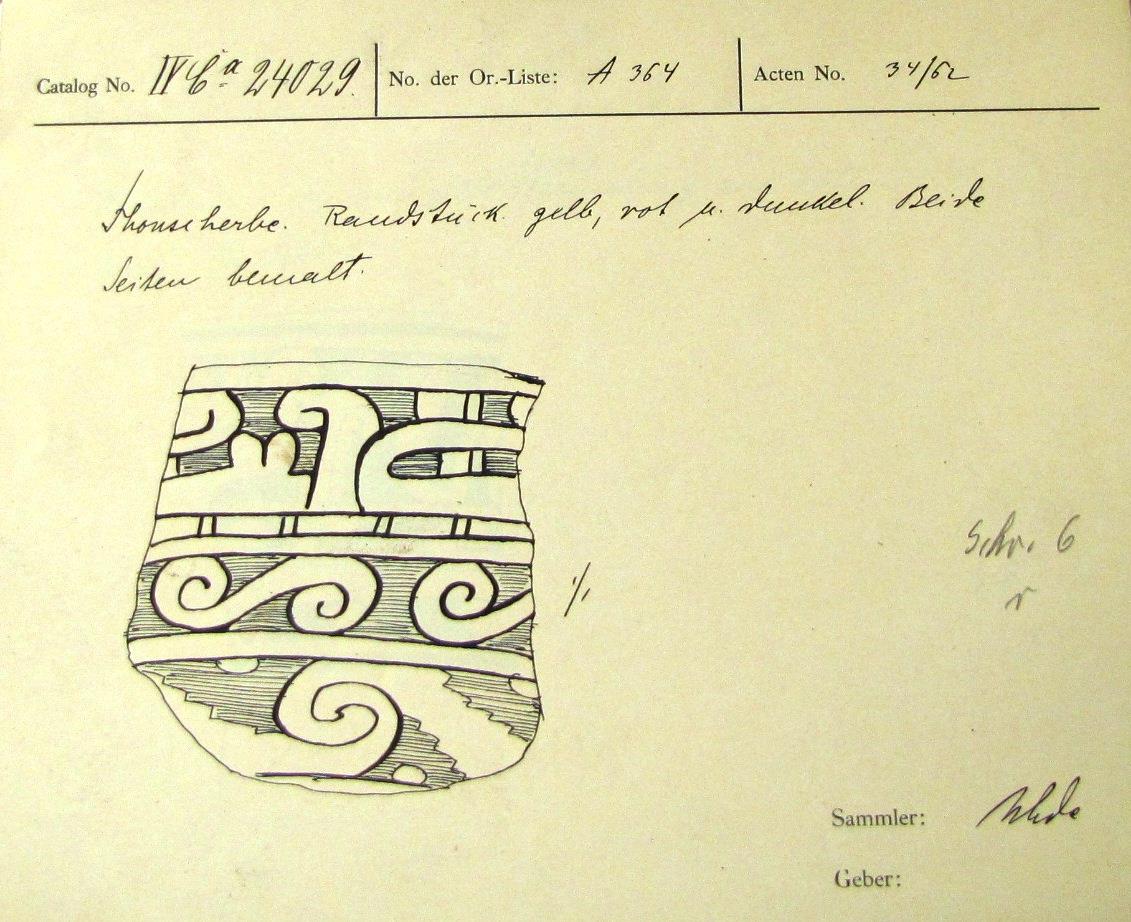 Catalog No. IV Ca 24029. No. der Or.-Liste: A 364 Acten No. 34/62
Thonscherbe. Randstück. gelb, rot u. dunkel. Beide
Seiten bemalt.
1/1
Schr. 6
r
Sammler: Uhde
Geber: